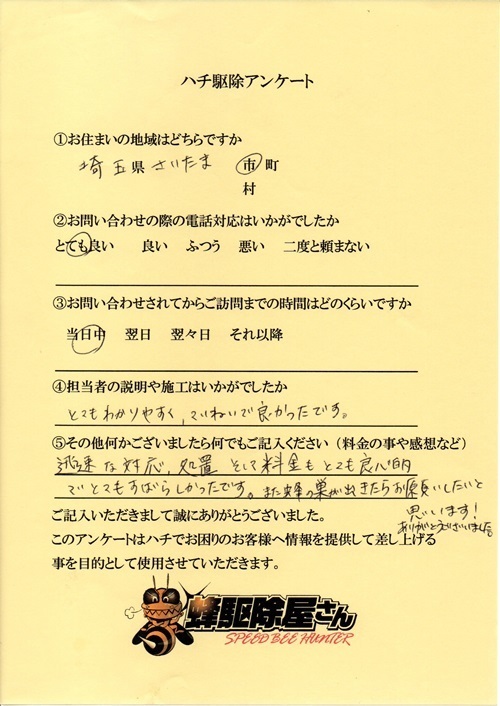 ハチ駆除アンケート
①お住まいの地域はどちらですか
埼玉県さいたま 市町
村
②お問い合わせの際の電話対応はいかがでしたか
とても良い 良い ふつう 悪い 二度と頼まない
③お問い合わせされてからご訪問までの時間はどのくらいですか
当日中 翌日 翌々日 それ以降
④担当者の説明や施工はいかがでしたか
とてもわかりやすく、ていねいで良かったです。
⑤その他何かございましたら何でもご記入ください（料金の事や感想など）
迅速な対応、処置 そして料金もとても良心的
でとてもすばらしかったです。また蜂の巣が出きたらお願いしたいと
思います！
ありがとうございました。
ご記入いただきまして誠にありがとうございました。
このアンケートはハチでお困りのお客様へ情報を提供して差し上げる
事を目的として使用させていただきます。
蜂駆除屋さん
SPEED BEE HUNTER